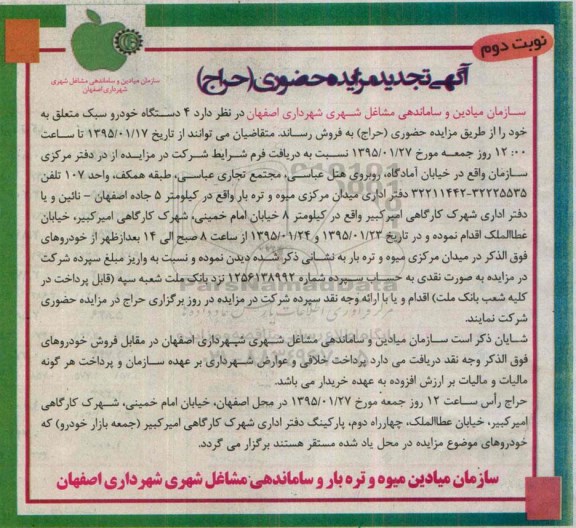 نوبت دوم
سازمان میادین و ساماندهی مشاغل شهری
شهرداری اصفهان
آگهی تجدید مزایده حضوری (حراج)
سازمان میادین و ساماندهی مشاغل شهری شهرداری اصفهان در نظر دارد ۴ دستگاه خودرو سبک متعلق به
خود را از طریق مزایده حضوری (حراج) به فروش رساند. متقاضیان می توانند از تاریخ ۱۳۹۵/۰۱/۱۷ تا ساعت
۱۲:۰۰ روز جمعه مورخ ۱۳۹۵/۰۱/۲۷ نسبت به دریافت فرم شرایط شرکت در مزایده از در دفتر مرکزی
سازمان واقع در خیابان آمادگاه، روبروی هتل عباسی، مجتمع تجاری عباسی، طبقه همکف، واحد ۱۰۷ تلفن
۳۲۲۲۵۵۳۵-۳۲۲۱۱۴۴۲ دفتر اداری میدان مرکزی میوه و تره بار واقع در کیلومتر ۵ جاده اصفهان - نائین و یا
دفتر اداری شهرک کارگاهی امیرکبیر واقع در کیلومتر ۸ خیابان امام خمینی، شهرک کارگاهی امیرکبیر، خیابان
عطاالملک اقدام نموده و در تاریخ ۱۳۹۵/۰۱/۲۳ و ۱۳۹۵/۰۱/۲۴ از ساعت ۸ صبح الی ۱۴ بعدازظهر از خودروهای
فوق الذکر در میدان مرکزی میوه و تره بار به نشانی ذکر شده دیدن نموده و نسبت به واریز مبلغ سپرده شرکت
در مزایده به صورت نقدی به حساب سپرده شماره ۱۲۵۶۱۳۸۹۹۲ نزد بانک ملت شعبه سپه (قابل پرداخت در
کلیه شعب بانک ملت) اقدام و یا با ارائه وجه نقد سپرده شرکت در مزایده در روز برگزاری حراج در مزایده حضوری
شرکت نمایند.
شایان ذکر است سازمان میادین و ساماندهی مشاغل شهری شهرداری اصفهان در مقابل فروش خودروهای
فوق الذکر وجه نقد دریافت می دارد پرداخت خلافی و عوارض شهرداری بر عهده سازمان و پرداخت هر گونه
مالیات و مالیات بر ارزش افزوده به عهده خریدار می باشد.
حراج رأس ساعت ۱۲ روز جمعه مورخ ۱۳۹۵/۰۱/۲۷ در محل اصفهان، خیابان امام خمینی، شهرک کارگاهی
امیرکبیر، خیابان عطاالملک، چهارراه دوم، پارکینگ دفتر اداری شهرک کارگاهی امیرکبیر (جمعه بازار خودرو) که
خودروهای موضوع مزایده در محل یاد شده مستقر هستند برگزار می گردد.
سازمان میادین میوه و تره بار و ساماندهی مشاغل شهری شهرداری اصفهان
ParsNamadData